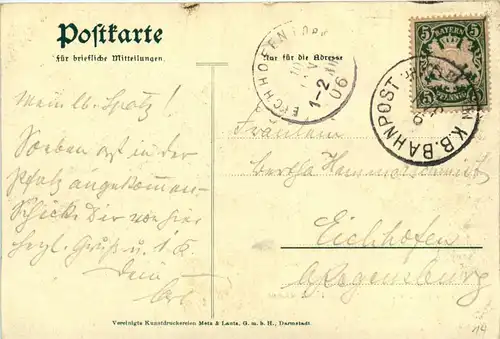 Postkarte
für briefliche Mitteilungen.
Nur für die Adresse
BAYERN
5 5
5 5
PFENNIG
EICHHOFEN
1-2
06
K.B. BAHNPOST
Mein lb. Spatz!
Soeben erst in der
Pfalz angekommen
Schicke Dir von hier
herzl. Gruß u. 1 K.
Dein
Fräulein
Bertha Hammerschmidt
Eichhofen
b/Regensburg
Vereinigte Kunstdruckereien Metz & Lautz, G. m. b. H., Darmstadt.